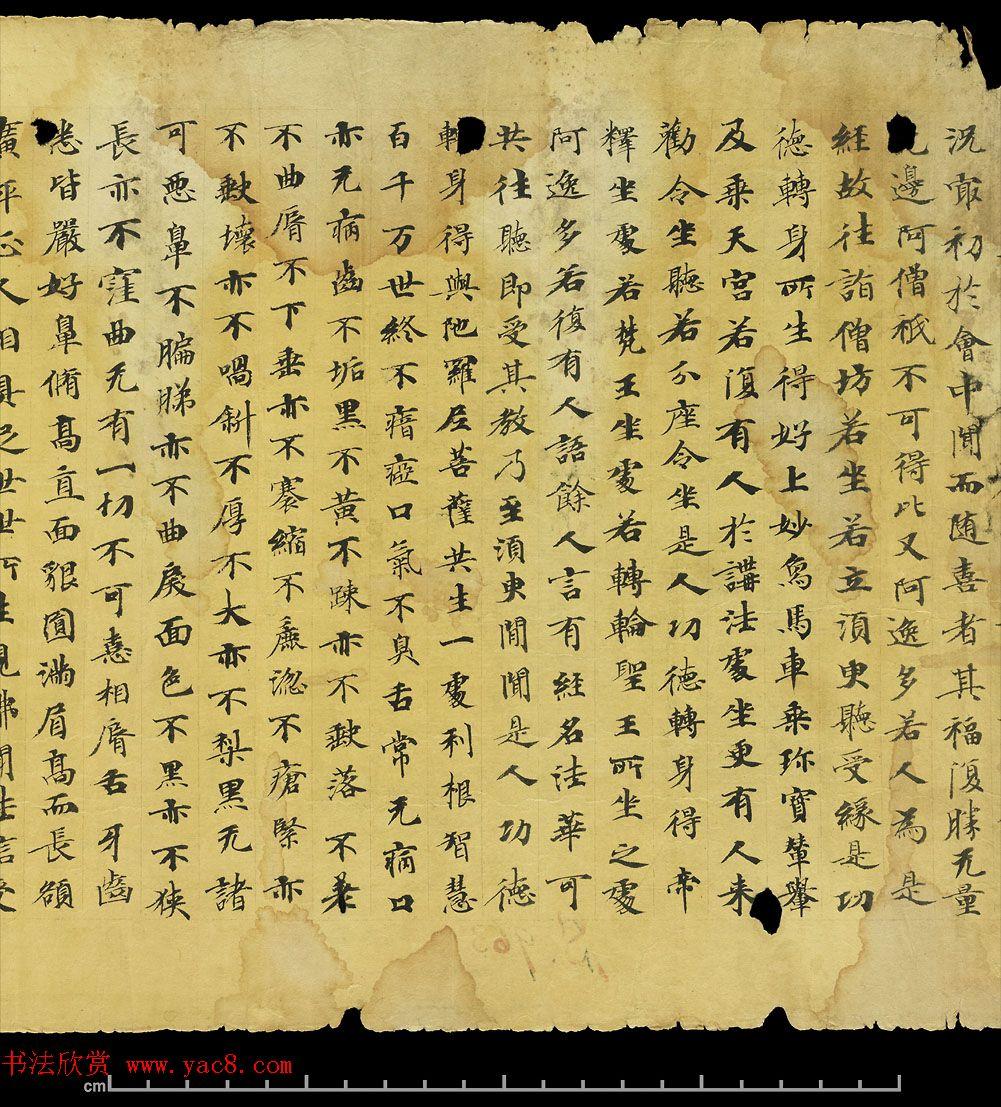 況㝡初於會中聞而随喜者其福復勝无量
无邊阿僧祇不可得比又阿逸多若人為是
經故往詣僧坊若坐若立須臾聽受緣是功
德轉身所生得好上妙象馬車乘珎寶輦轝
及乘天宫若復有人於講法處坐更有人来
勸令坐聽若分座令坐是人功德轉身得帝
釋坐處若梵王坐處若轉輪聖王所坐之處
阿逸多若復有人語餘人言有經名法華可
共往聽即受其教乃至須臾閒聞是人功德
轉身得與陁羅尼菩薩共生一處利根智慧
百千万世終不瘖瘂口氣不臭舌常无病口
亦无病齒不垢黑不黄不踈亦不缺落不差
不曲脣不下垂亦不褰縮不麁澁不瘡緊亦
不缺壞亦不喎斜不厚不大亦不梨黑无諸
可惡鼻不膈䏲亦不曲戾面色不黑亦不狹
長亦不窪曲无有一切不可憙相脣舌牙齒
悉皆嚴好鼻脩髙直面貌圓滿眉髙而長額
廣平正人相具足世世所生見佛聞法信受
书法欣赏 www.yac8.com
cm